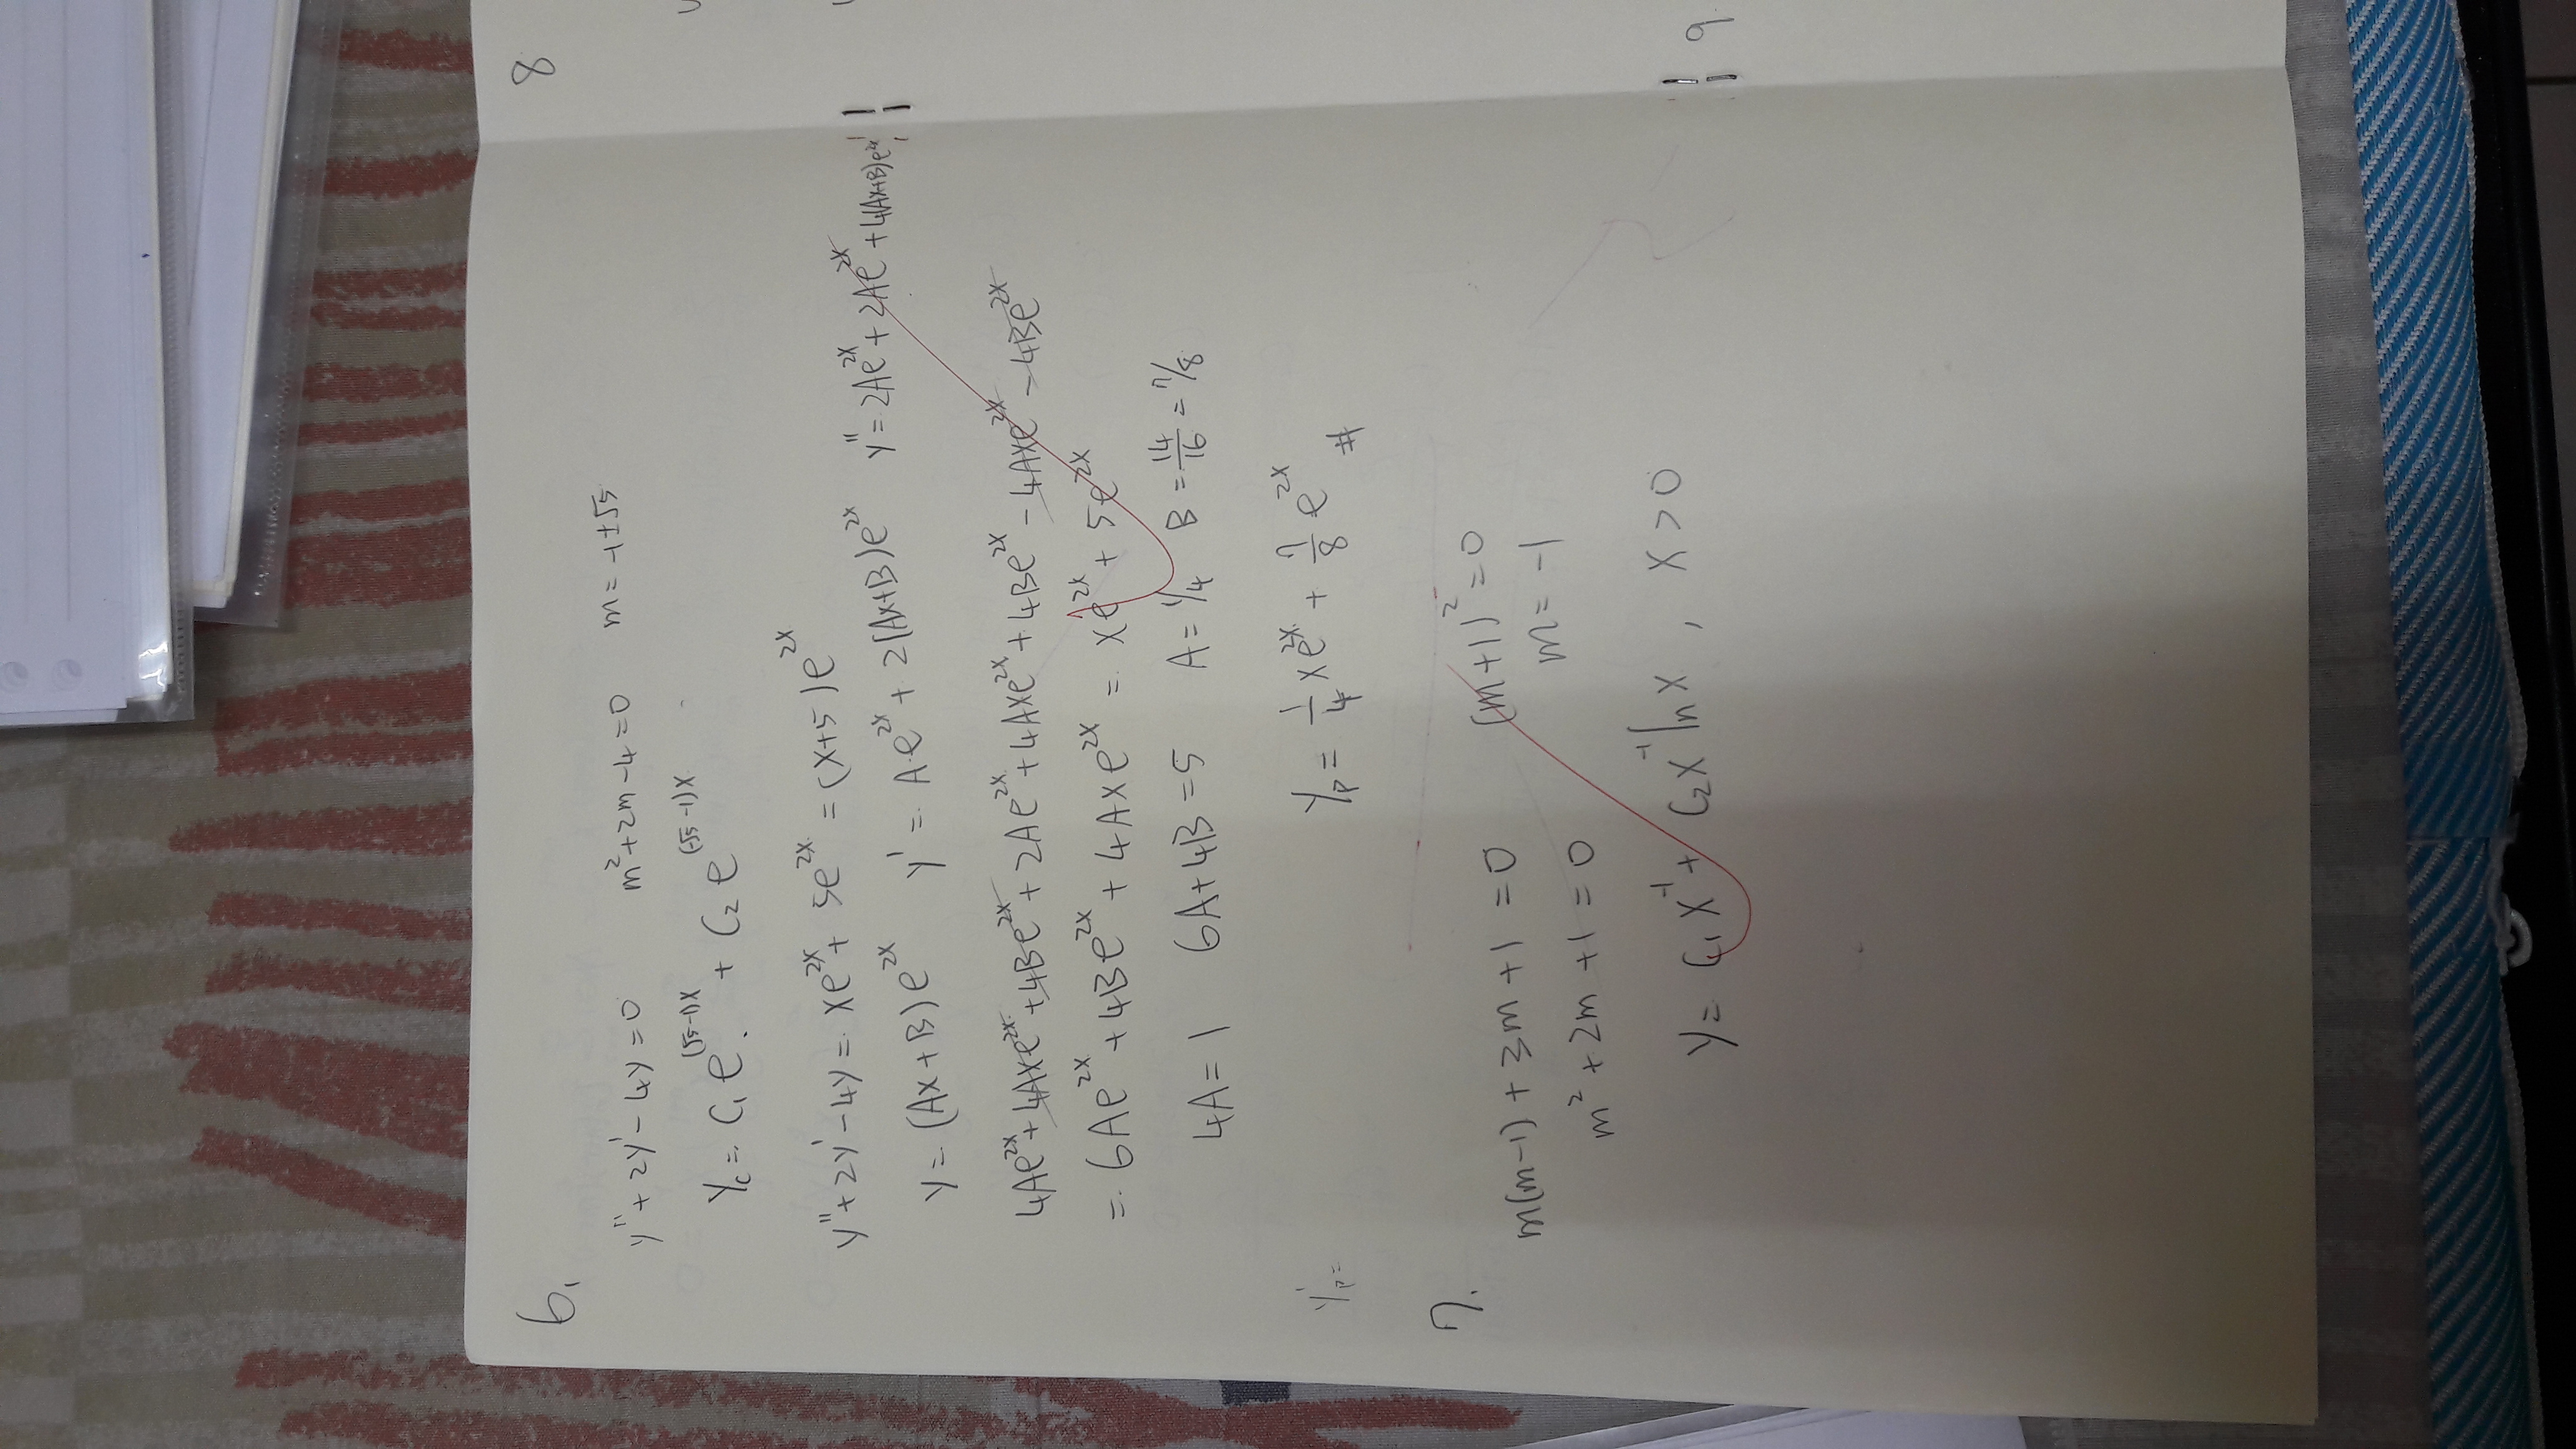 6.
y'' + 2y' - 4y = 0 m² + 2m - 4 = 0 m = -1 ± √5
Yc = C₁e^(√5-1)x + C₂e^(-√5-1)x
y'' + 2y' - 4y = xe^2x + 5e^2x = (x+5)e^2x
y = (Ax+B)e^2x y' = Ae^2x + 2(Ax+B)e^2x y'' = 2Ae^2x + 2Ae^2x + 4(Ax+B)e^2x
4Ae^2x + 4Axe^2x + 4Be^2x + 2Ae^2x + 4Axe^2x + 4Be^2x - 4Axe^2x - 4Be^2x
= 6Ae^2x + 4Be^2x + 4Axe^2x = xe^2x + 5e^2x
4A = 1 6A + 4B = 5 A = 1/4 B = 14/16 = 7/8
y'p =
Yp = 1/4 xe^2x + 7/8 e^2x #
7.
m(m-1) + 3m + 1 = 0 (m+1)² = 0
m² + 2m + 1 = 0 m = -1
y = C₁x⁻¹ + C₂x⁻¹ ln x , x > 0
8
9